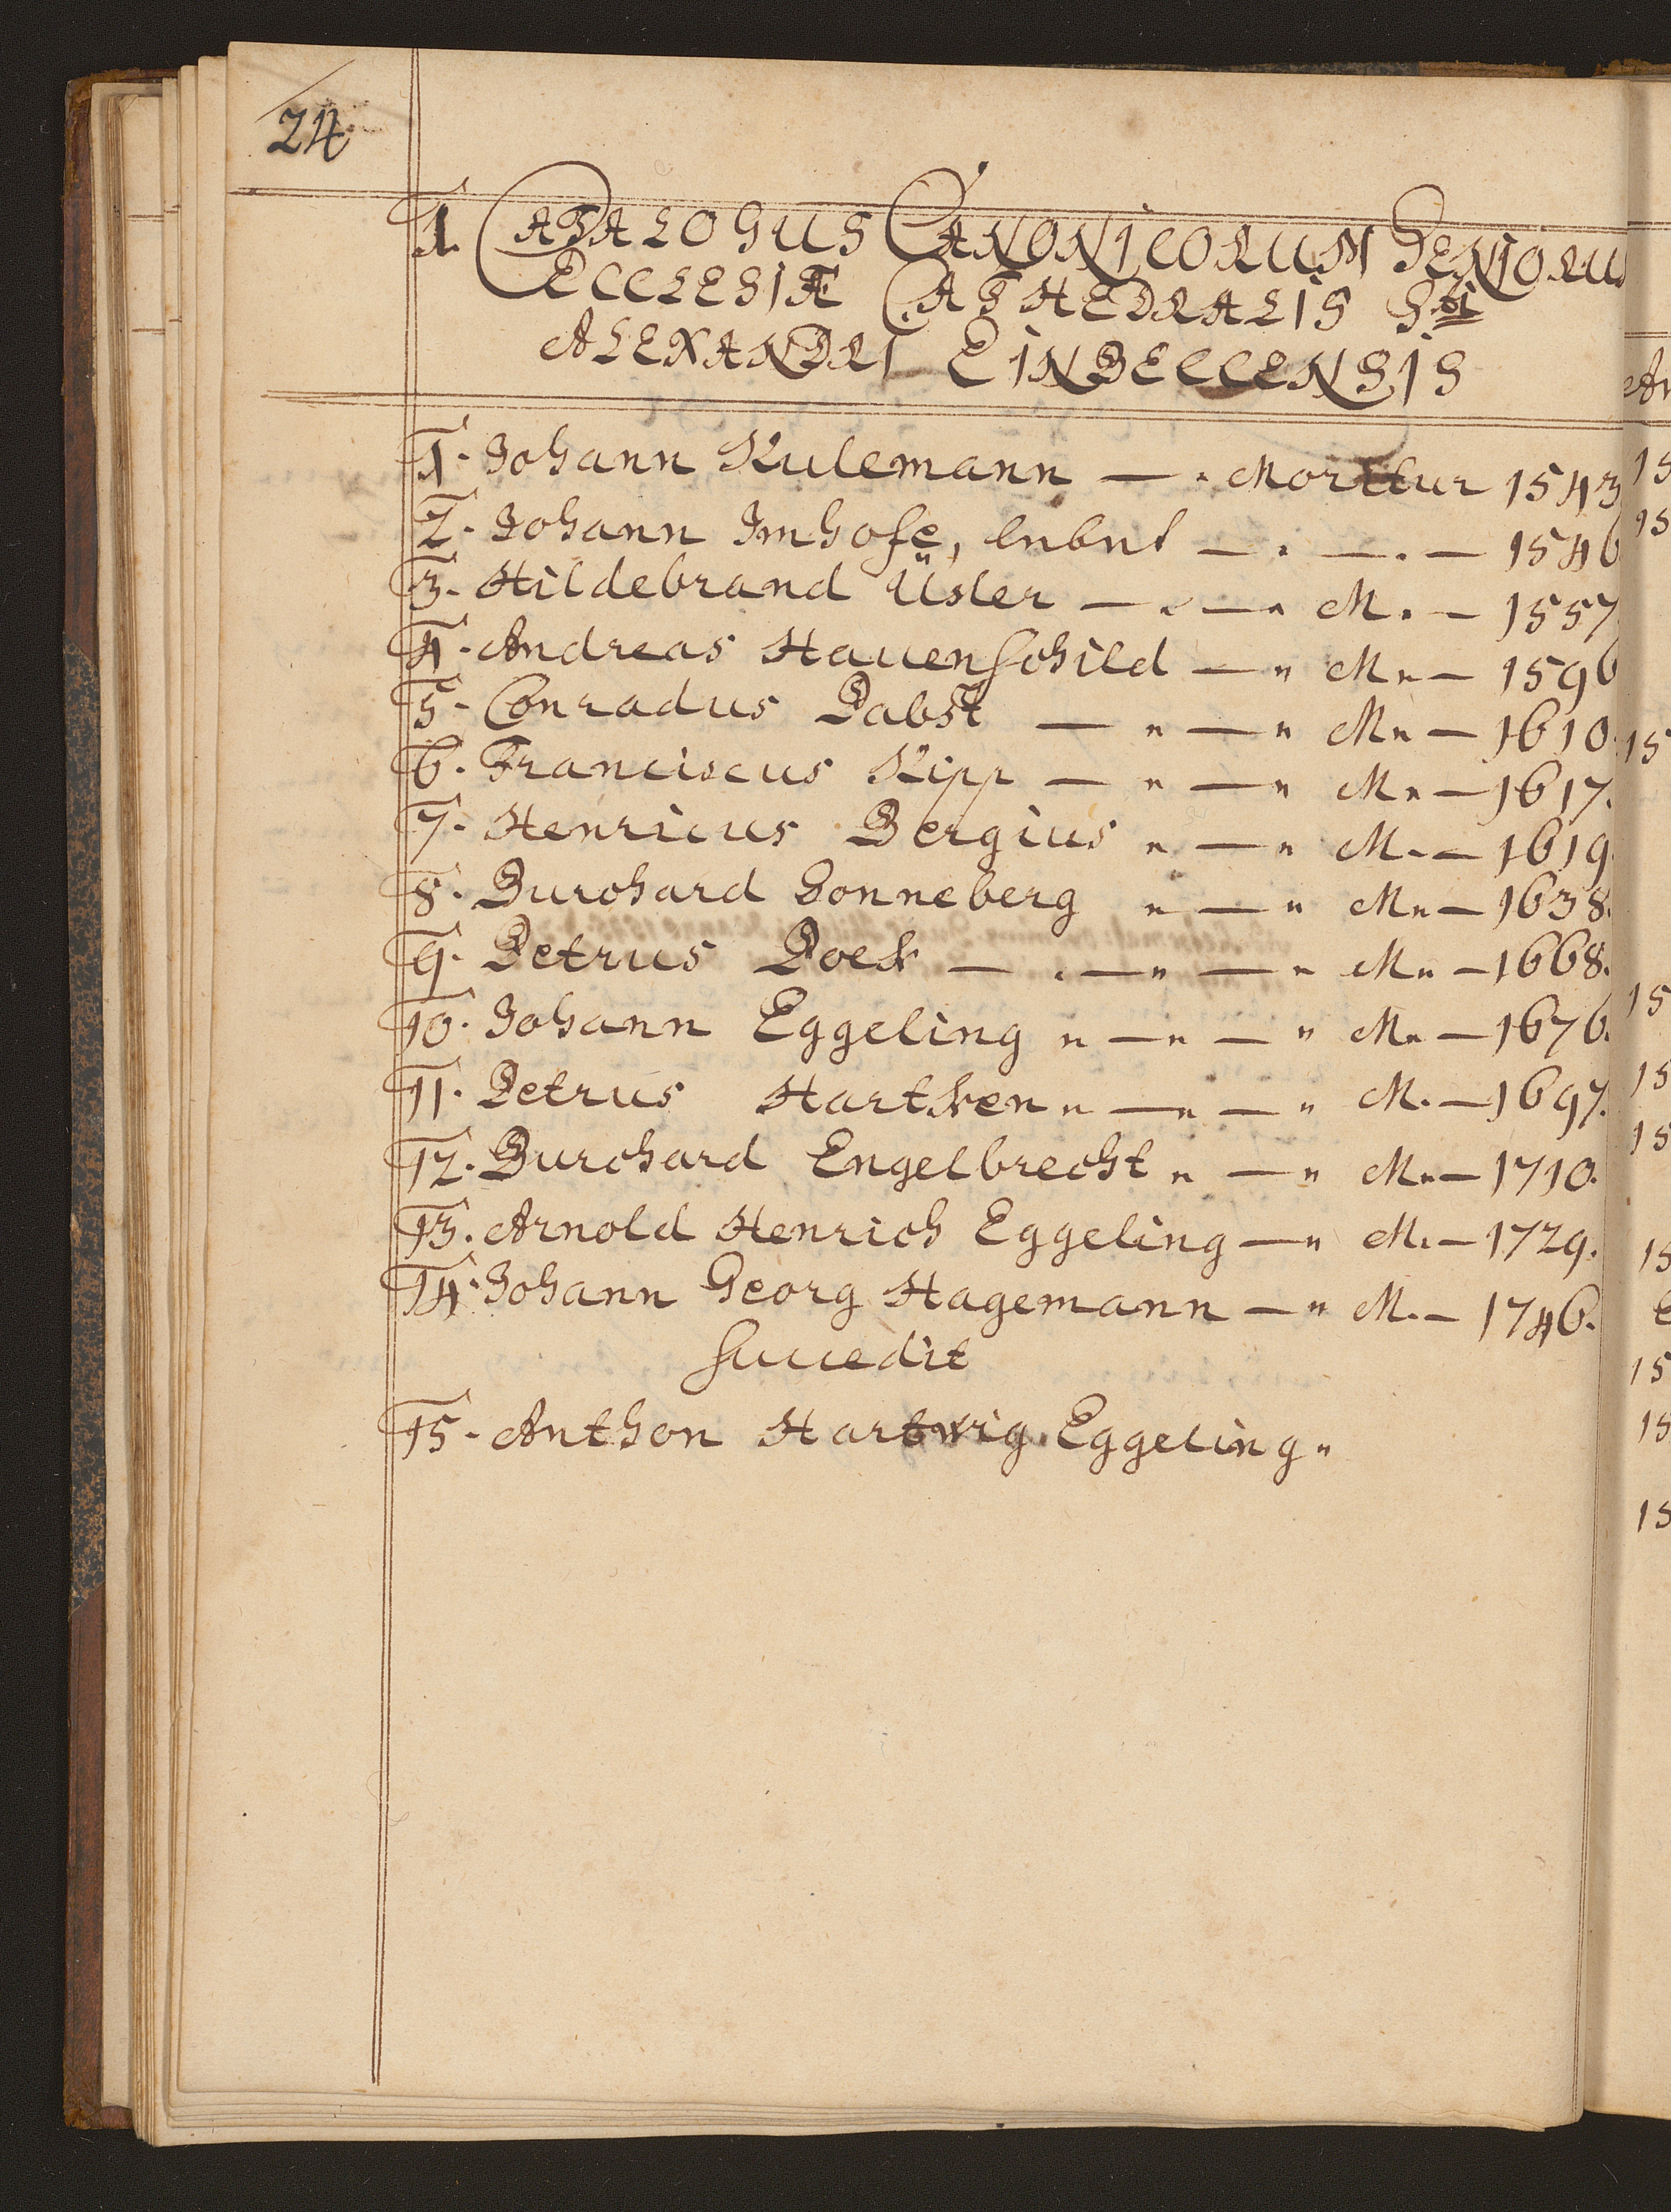 24
1. CATALOGUS CANONICORUM SENIORU
ECCLESIÆ CATHEDRALIS S.ti
ALEXANDRI EINBECCENSIS
1. Johann Kulemann — . Moritur 1543
2. Johann Imhofe, lebnt — . — . — 1546
3. Hildebrand Üsler — . — " M. — 1557
4. Andreas Hauenschild — " M " — 1596
5. Conradus Pabst — " — " M " — 1610.
6. Franciscus Kipp — " — " M " — 1617.
7. Henricus Bergius " — " M. — 1619.
8. Burchard Sonneberg " — " M " — 1638.
9. Petrus Poek — . — " — " M " — 1668.
10. Johann Eggeling " — " — " M " — 1676.
11. Petrus Hartken " — " — " M. — 1697.
12. Burchard Engelbrecht " — " M " — 1710.
13. Arnold Henrich Eggeling — " M. — 1729.
14. Johann Georg Hagemann — " M. — 1746.
succedit
15. Anthon Hartwig Eggeling "